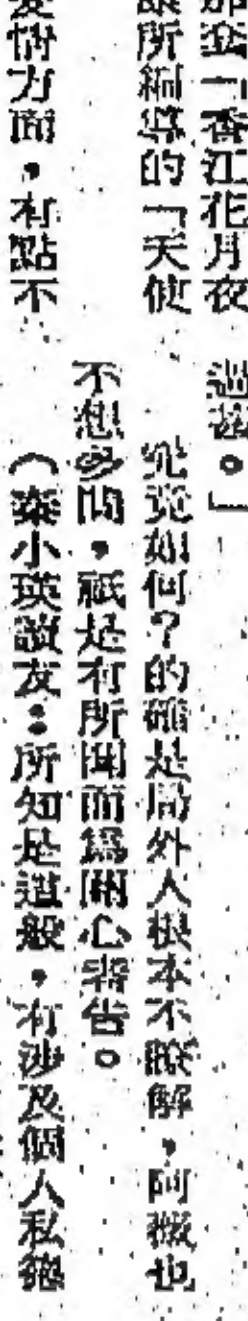 那套「香江花月夜
所編導的「天使
愛情方面，有點不
過甚。」
究竟如何？的確是局外人根本不瞭解，阿薇也
不想多問，祇是有所聞而爲關心者告。
（秦小瑛讀友：所知是這般，有涉及個人私